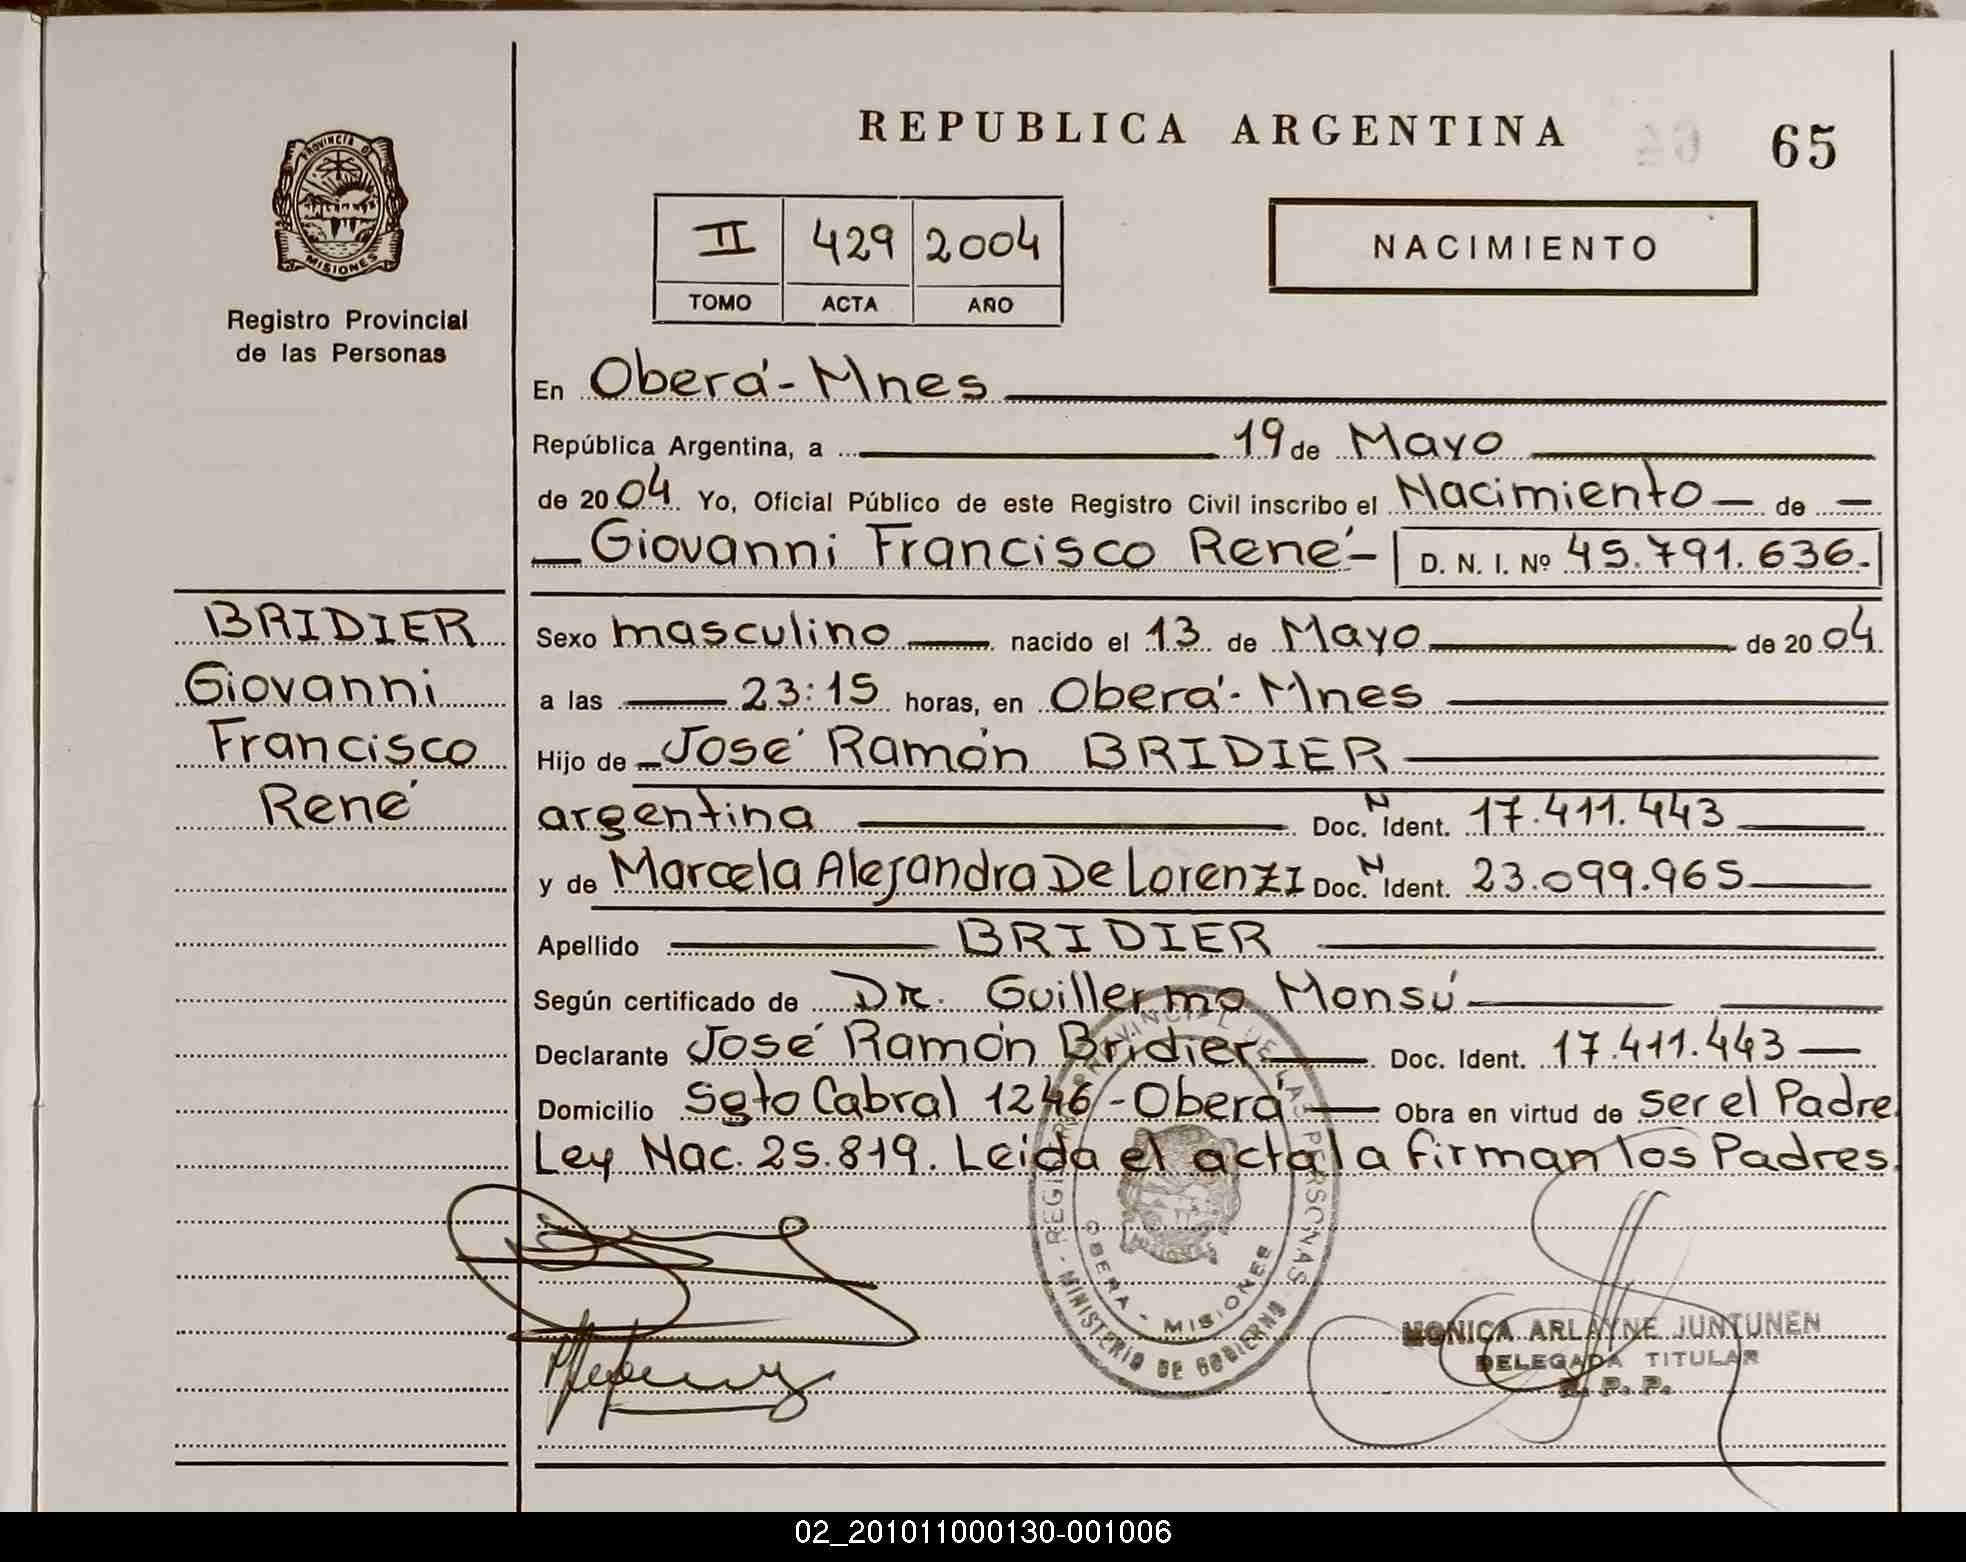 REPUBLICA ARGENTINA
65
PROVINCIA DE
MISIONES
Registro Provincial
de las Personas
II 429 2004
TOMO ACTA AÑO
NACIMIENTO
En Oberá - Mnes
República Argentina, a 19 de Mayo
de 2004 Yo, Oficial Público de este Registro Civil inscribo el Nacimiento — de —
— Giovanni Francisco René - D. N. I. Nº 45.791.636.-
BRIDIER
Giovanni
Francisco
René
Sexo masculino — nacido el 13 de Mayo — de 2004
a las — 23:15 horas, en Oberá - Mnes
Hijo de — José Ramón BRIDIER
argentina — Doc. N Ident. 17.411.443 —
y de Marcela Alejandra De LorenzI Doc. N Ident. 23.099.965 —
Apellido — BRIDIER —
Según certificado de Dr. Guillermo Monsú —
Declarante José Ramón Bridier — Doc. Ident. 17.411.443 —
Domicilio Sgto Cabral 1246 - Oberá — Obra en virtud de ser el Padre.
Ley Nac. 25.819. Leida el acta la firman los Padres.
REGISTRO PROVINCIAL DE LAS PERSONAS
MINISTERIO DE GOBIERNO
OBERA - MISIONES
MONICA ARLAYNE JUNTUNEN
DELEGADA TITULAR
R. P. P.
02_201011000130-001006